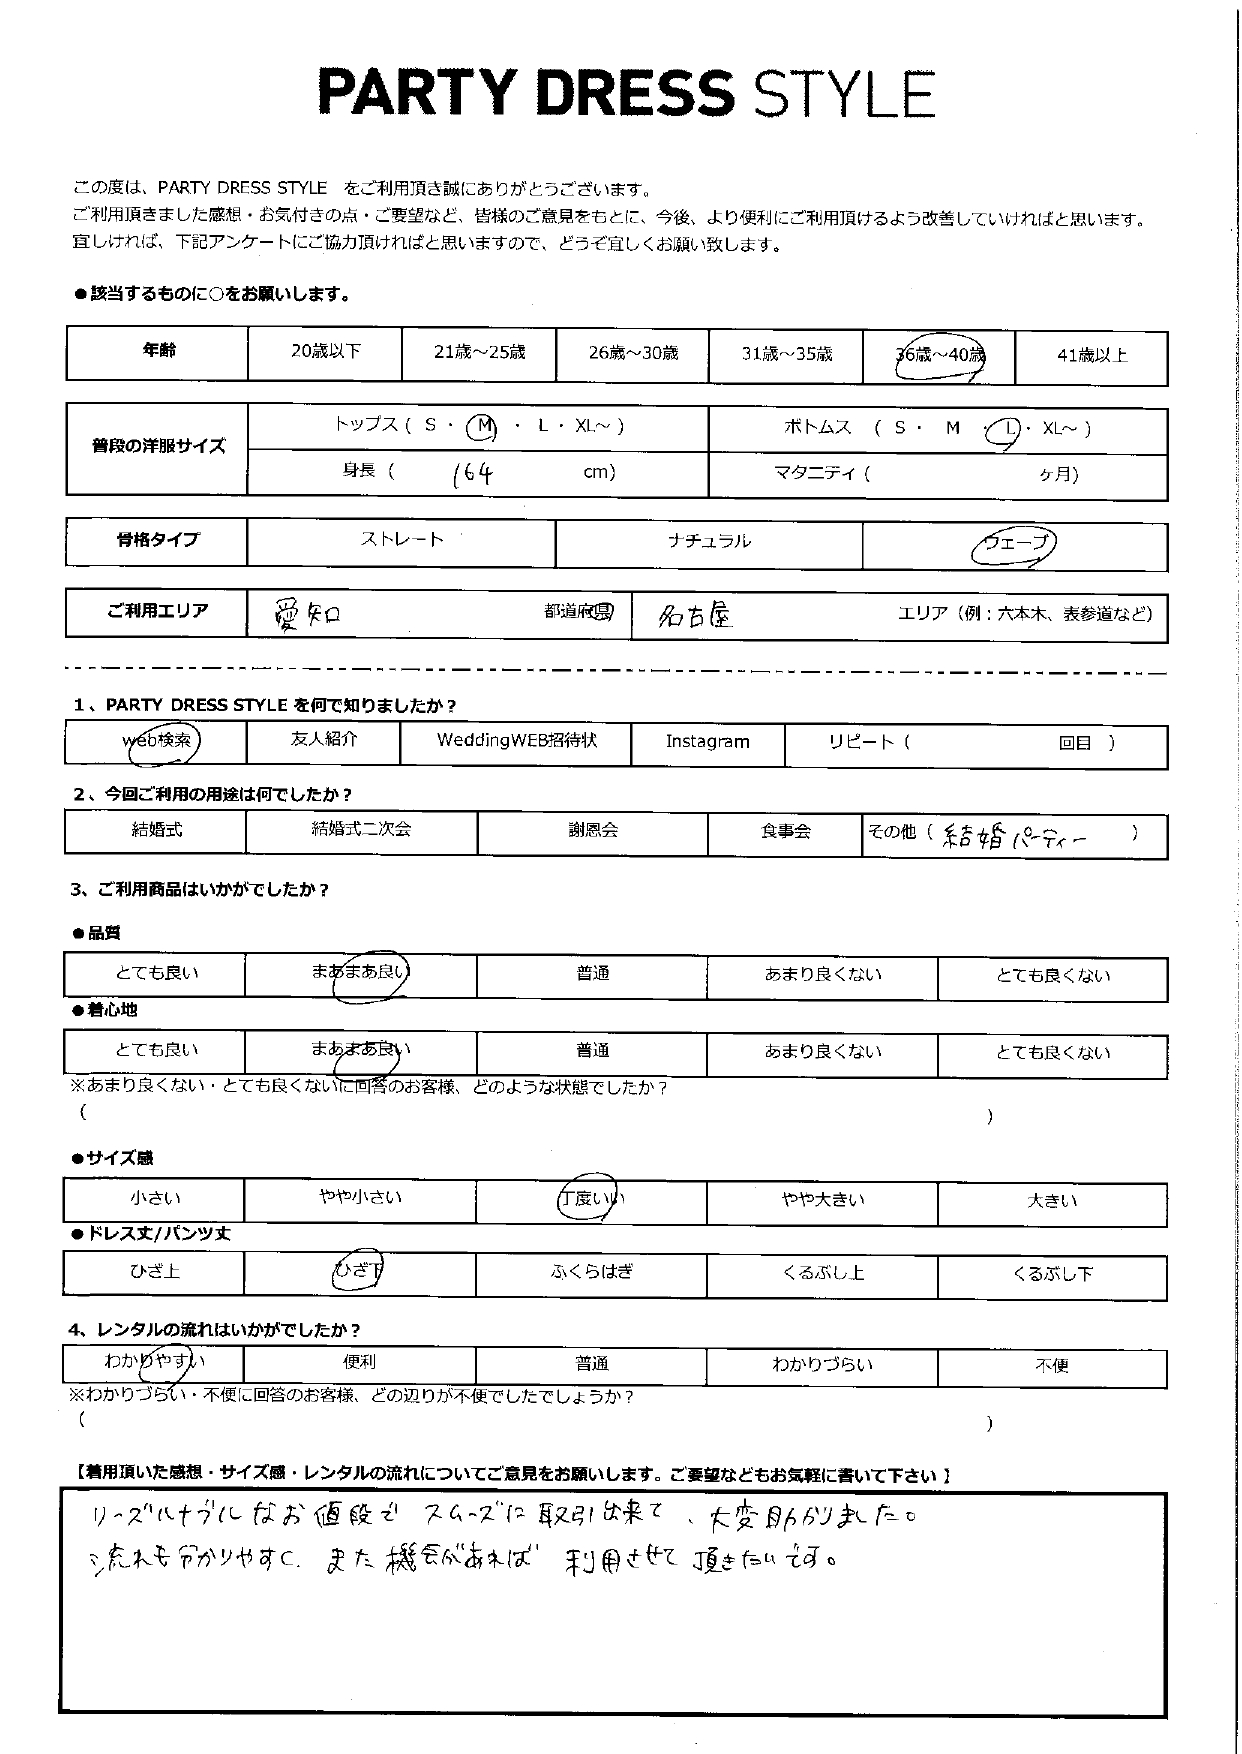 PARTY DRESS STYLE
この度は、PARTY DRESS STYLE をご利用頂き誠にありがとうございます。
ご利用頂きました感想・お気付きの点・ご要望など、皆様のご意見をもとに、今後、より便利にご利用頂けるよう改善していければと思います。
宜しければ、下記アンケートにご協力頂ければと思いますので、どうぞ宜しくお願い致します。
●該当するものに○をお願いします。
年齢 20歳以下 21歳～25歳 26歳～30歳 31歳～35歳 36歳～40歳 41歳以上
普段の洋服サイズ
トップス ( S ・ M ・ L ・ XL～ ) ボトムス ( S ・ M ・ L ・ XL～ )
身長 ( 164 cm) マタニティ ( ヶ月)
骨格タイプ ストレート ナチュラル ウェーブ
ご利用エリア 愛知 都道府県 名古屋 エリア（例：六本木、表参道など）
1、PARTY DRESS STYLE を何で知りましたか？
web検索 友人紹介 WeddingWEB招待状 Instagram リピート ( 回目 )
2、今回ご利用の用途は何でしたか？
結婚式 結婚式二次会 謝恩会 食事会 その他 ( 結婚パーティー )
3、ご利用商品はいかがでしたか？
●品質
とても良い まあまあ良い 普通 あまり良くない とても良くない
●着心地
とても良い まあまあ良い 普通 あまり良くない とても良くない
※あまり良くない・とても良くないに回答のお客様、どのような状態でしたか？
( )
●サイズ感
小さい やや小さい 丁度いい やや大きい 大きい
●ドレス丈/パンツ丈
ひざ上 ひざ下 ふくらはぎ くるぶし上 くるぶし下
4、レンタルの流れはいかがでしたか？
わかりやすい 便利 普通 わかりづらい 不便
※わかりづらい・不便に回答のお客様、どの辺りが不便でしたでしょうか？
( )
【着用頂いた感想・サイズ感・レンタルの流れについてご意見をお願いします。ご要望などもお気軽に書いて下さい】
リーズルナブルなお値段で スムーズに取引出来て、大変助かりました。
流れも分かりやすく、また機会があれば利用させて頂きたいです。